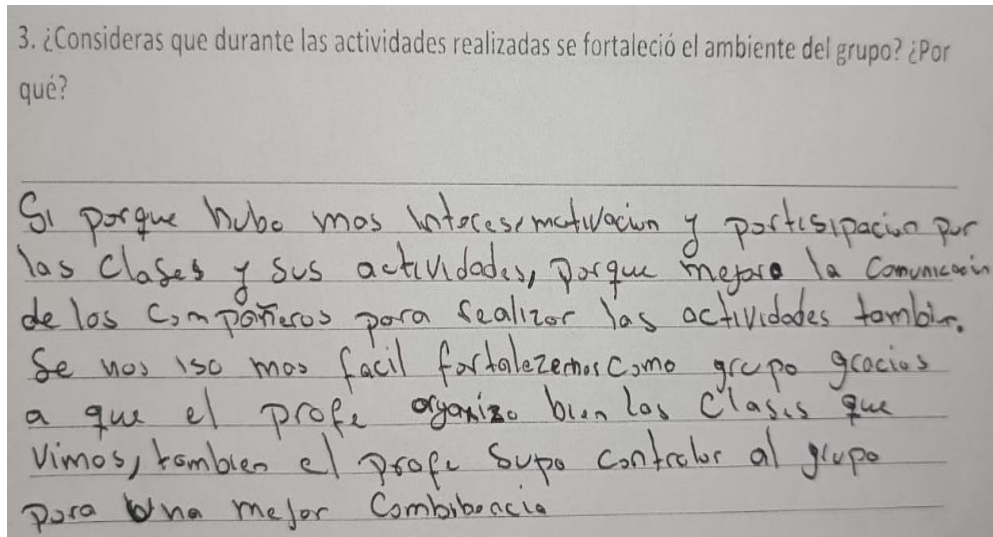 3. ¿Consideras que durante las actividades realizadas se fortaleció el ambiente del grupo? ¿Por
qué?
Si porque hubo mas interes, motivacion y partisipacion por
las clases y sus actividades, porque mejoro la comunicacion
de los compañeros para realizar las actividades tambien.
Se nos iso mas facil fortalezernos como grupo gracias
a que el profe organizo bien las clases que
vimos, tambien el profe supo controlar al grupo
para una mejor combibencia